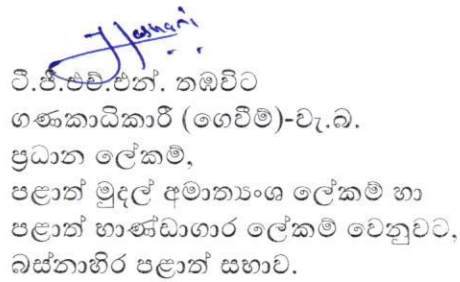 ටී.ජී.එච්.එන්. තඹවිට
ගණකාධිකාරී (ගෙවීම්)-වැ.බ.
ප්‍රධාන ලේකම්,
පළාත් මුදල් අමාත්‍යංශ ලේකම් හා
පළාත් භාණ්ඩාගාර ලේකම් වෙනුවට,
බස්නාහිර පළාත් සභාව.